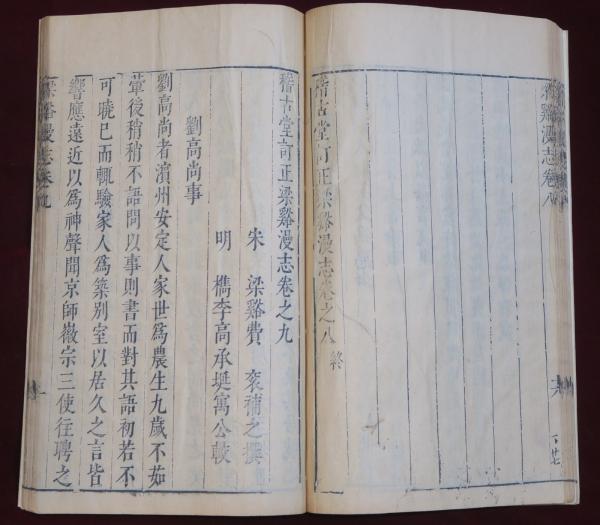 梁谿漫志卷八
下廿七
稽古堂訂正梁谿漫志卷之八終
稽古堂訂正梁谿漫志卷之九
宋 梁谿費 衮補之撰
明 檇李高承埏寓公較
劉高尚事
劉高尚者濱州安定人家世爲農生九歲不茹
葷後稍稍不語問以事則書而對其語初若不
可曉已而輒驗家人爲築别室以居久之言皆
響應遠近以爲神聲聞京師徽宗三使往聘之
梁谿漫志卷九